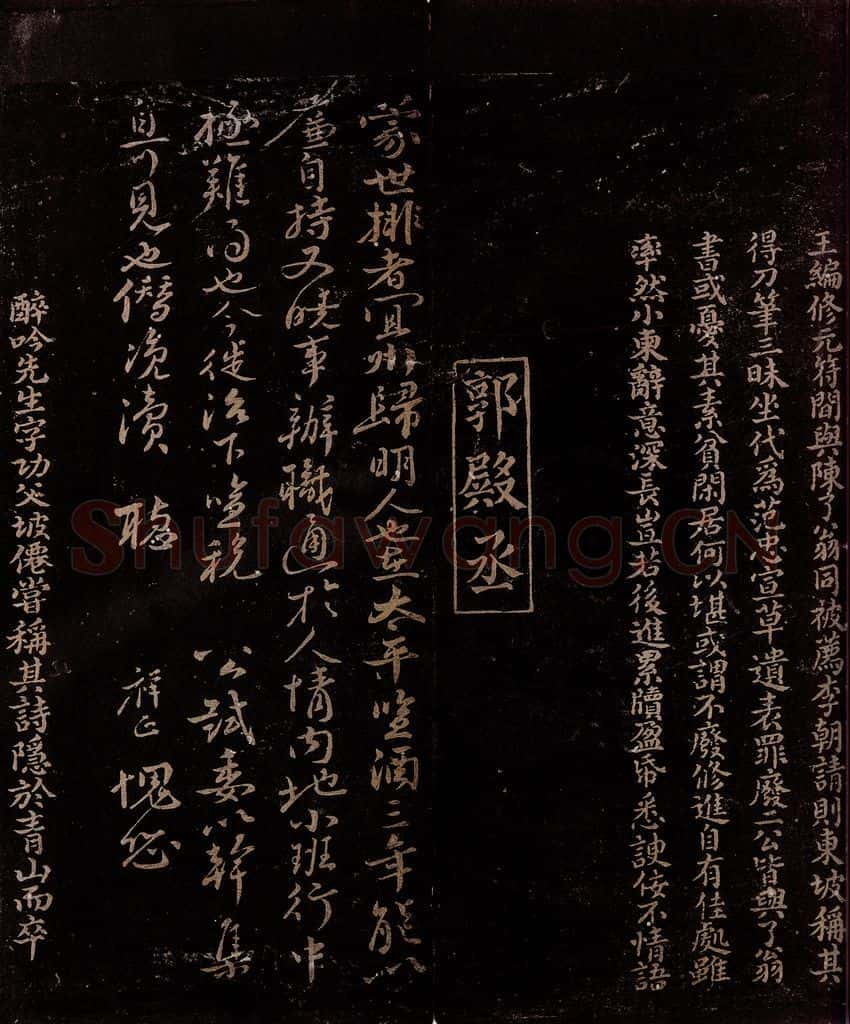 王編修元符間與陳了翁同被薦李朝請則東坡稱其
得刀筆三昧坐代為范忠宣草遺表罪廢二公皆與了翁
書或憂其素貧閑居何以堪或謂不廢修進自有佳處雖
率然小柬辭意深長豈若後進累牘盈帋悉諛佞不情語
郭殿丞
蒙世排者宜州歸明人在太平監酒三年能以
廉自持又曉事辦職通於人情内地小班行中
極難得也今徙治下監税 公試委以幹集
自可見也僭浼瀆 聴 祥正 愧恐
醉吟先生字功父坡僊嘗稱其詩隱於青山而卒
Shufawang.CN